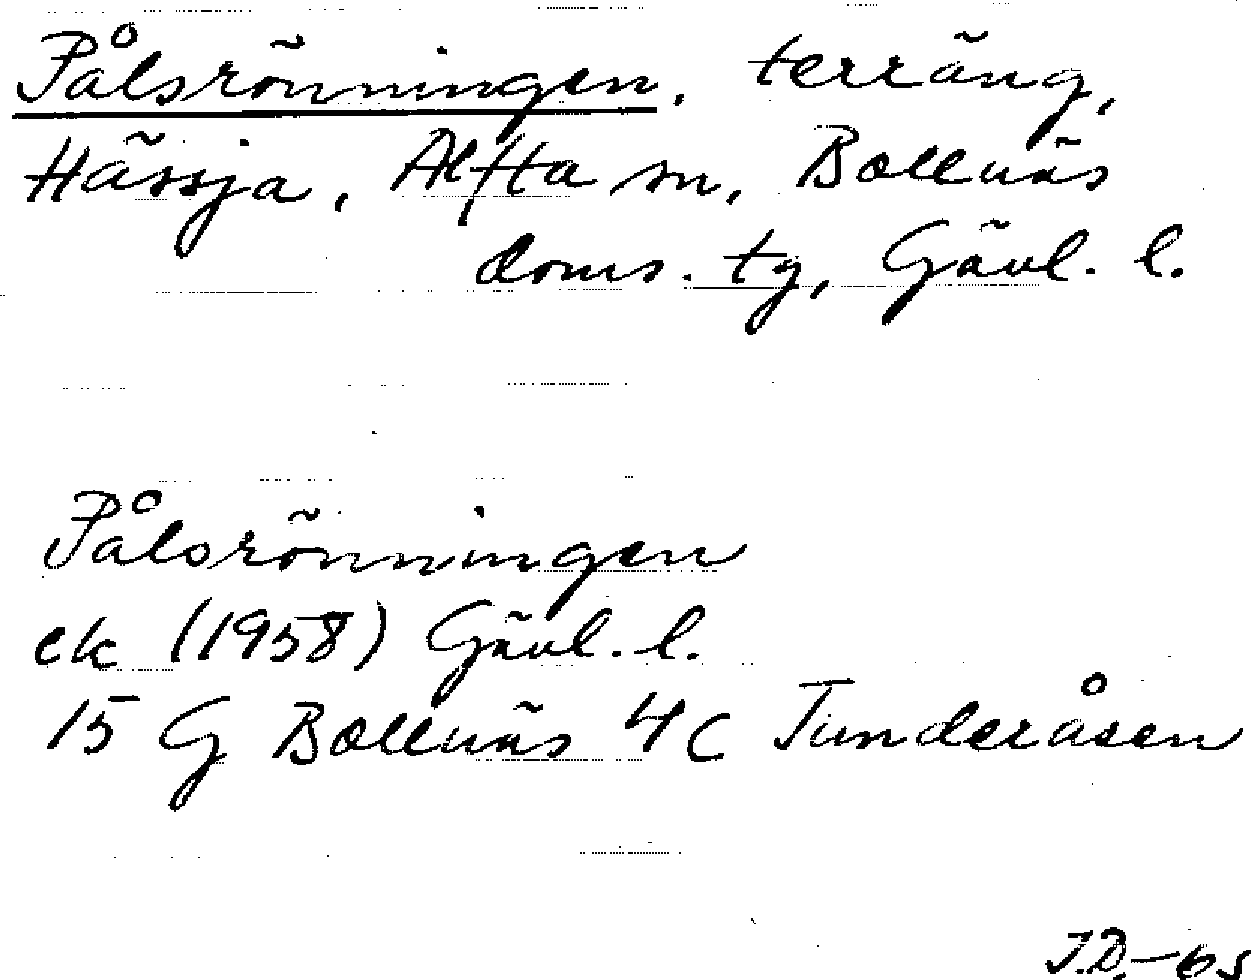 Pålsrönningen, terräng,
Hässja, Alfta sn, Bollnäs
doms. tg, Gävl. l.
Pålsrönningen
ek (1958) Gävl. l.
15 G Bollnäs 4 c Tunderåsen
J.D.-65